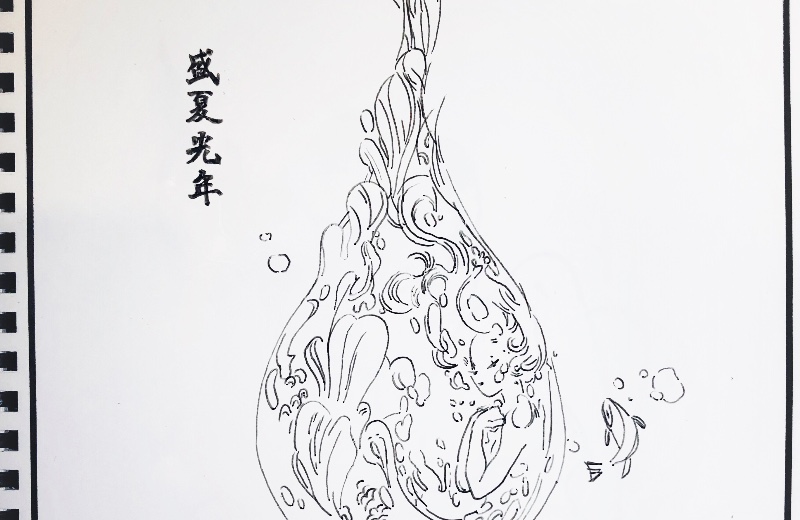 盛夏光年